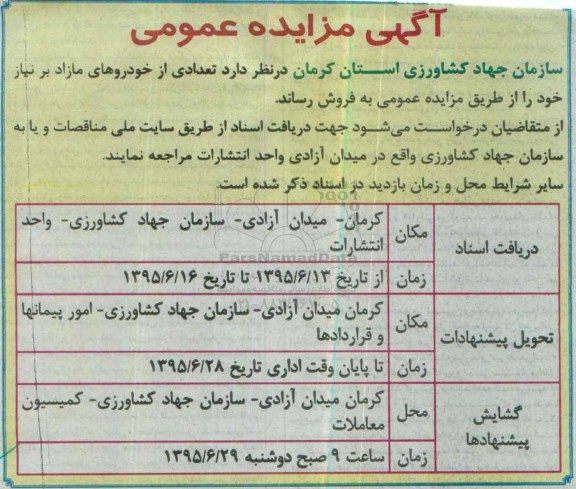 آگهی مزایده عمومی
سازمان جهاد کشاورزی استان کرمان درنظر دارد تعدادی از خودروهای مازاد بر نیاز
خود را از طریق مزایده عمومی به فروش رساند.
از متقاضیان درخواست می‌شود جهت دریافت اسناد از طریق سایت ملی مناقصات و یا به
سازمان جهاد کشاورزی واقع در میدان آزادی واحد انتشارات مراجعه نمایند.
سایر شرایط محل و زمان بازدید در اسناد ذکر شده است.
دریافت اسناد
مکان
کرمان- میدان آزادی- سازمان جهاد کشاورزی- واحد
انتشارات
زمان
از تاریخ ۱۳۹۵/۶/۱۳ تا تاریخ ۱۳۹۵/۶/۱۶
تحویل پیشنهادات
مکان
کرمان میدان آزادی- سازمان جهاد کشاورزی- امور پیمانها
و قراردادها
زمان
تا پایان وقت اداری تاریخ ۱۳۹۵/۶/۲۸
گشایش
پیشنهادها
محل
کرمان میدان آزادی- سازمان جهاد کشاورزی- کمیسیون
معاملات
زمان
ساعت ۹ صبح دوشنبه ۱۳۹۵/۶/۲۹
ParsNamadData